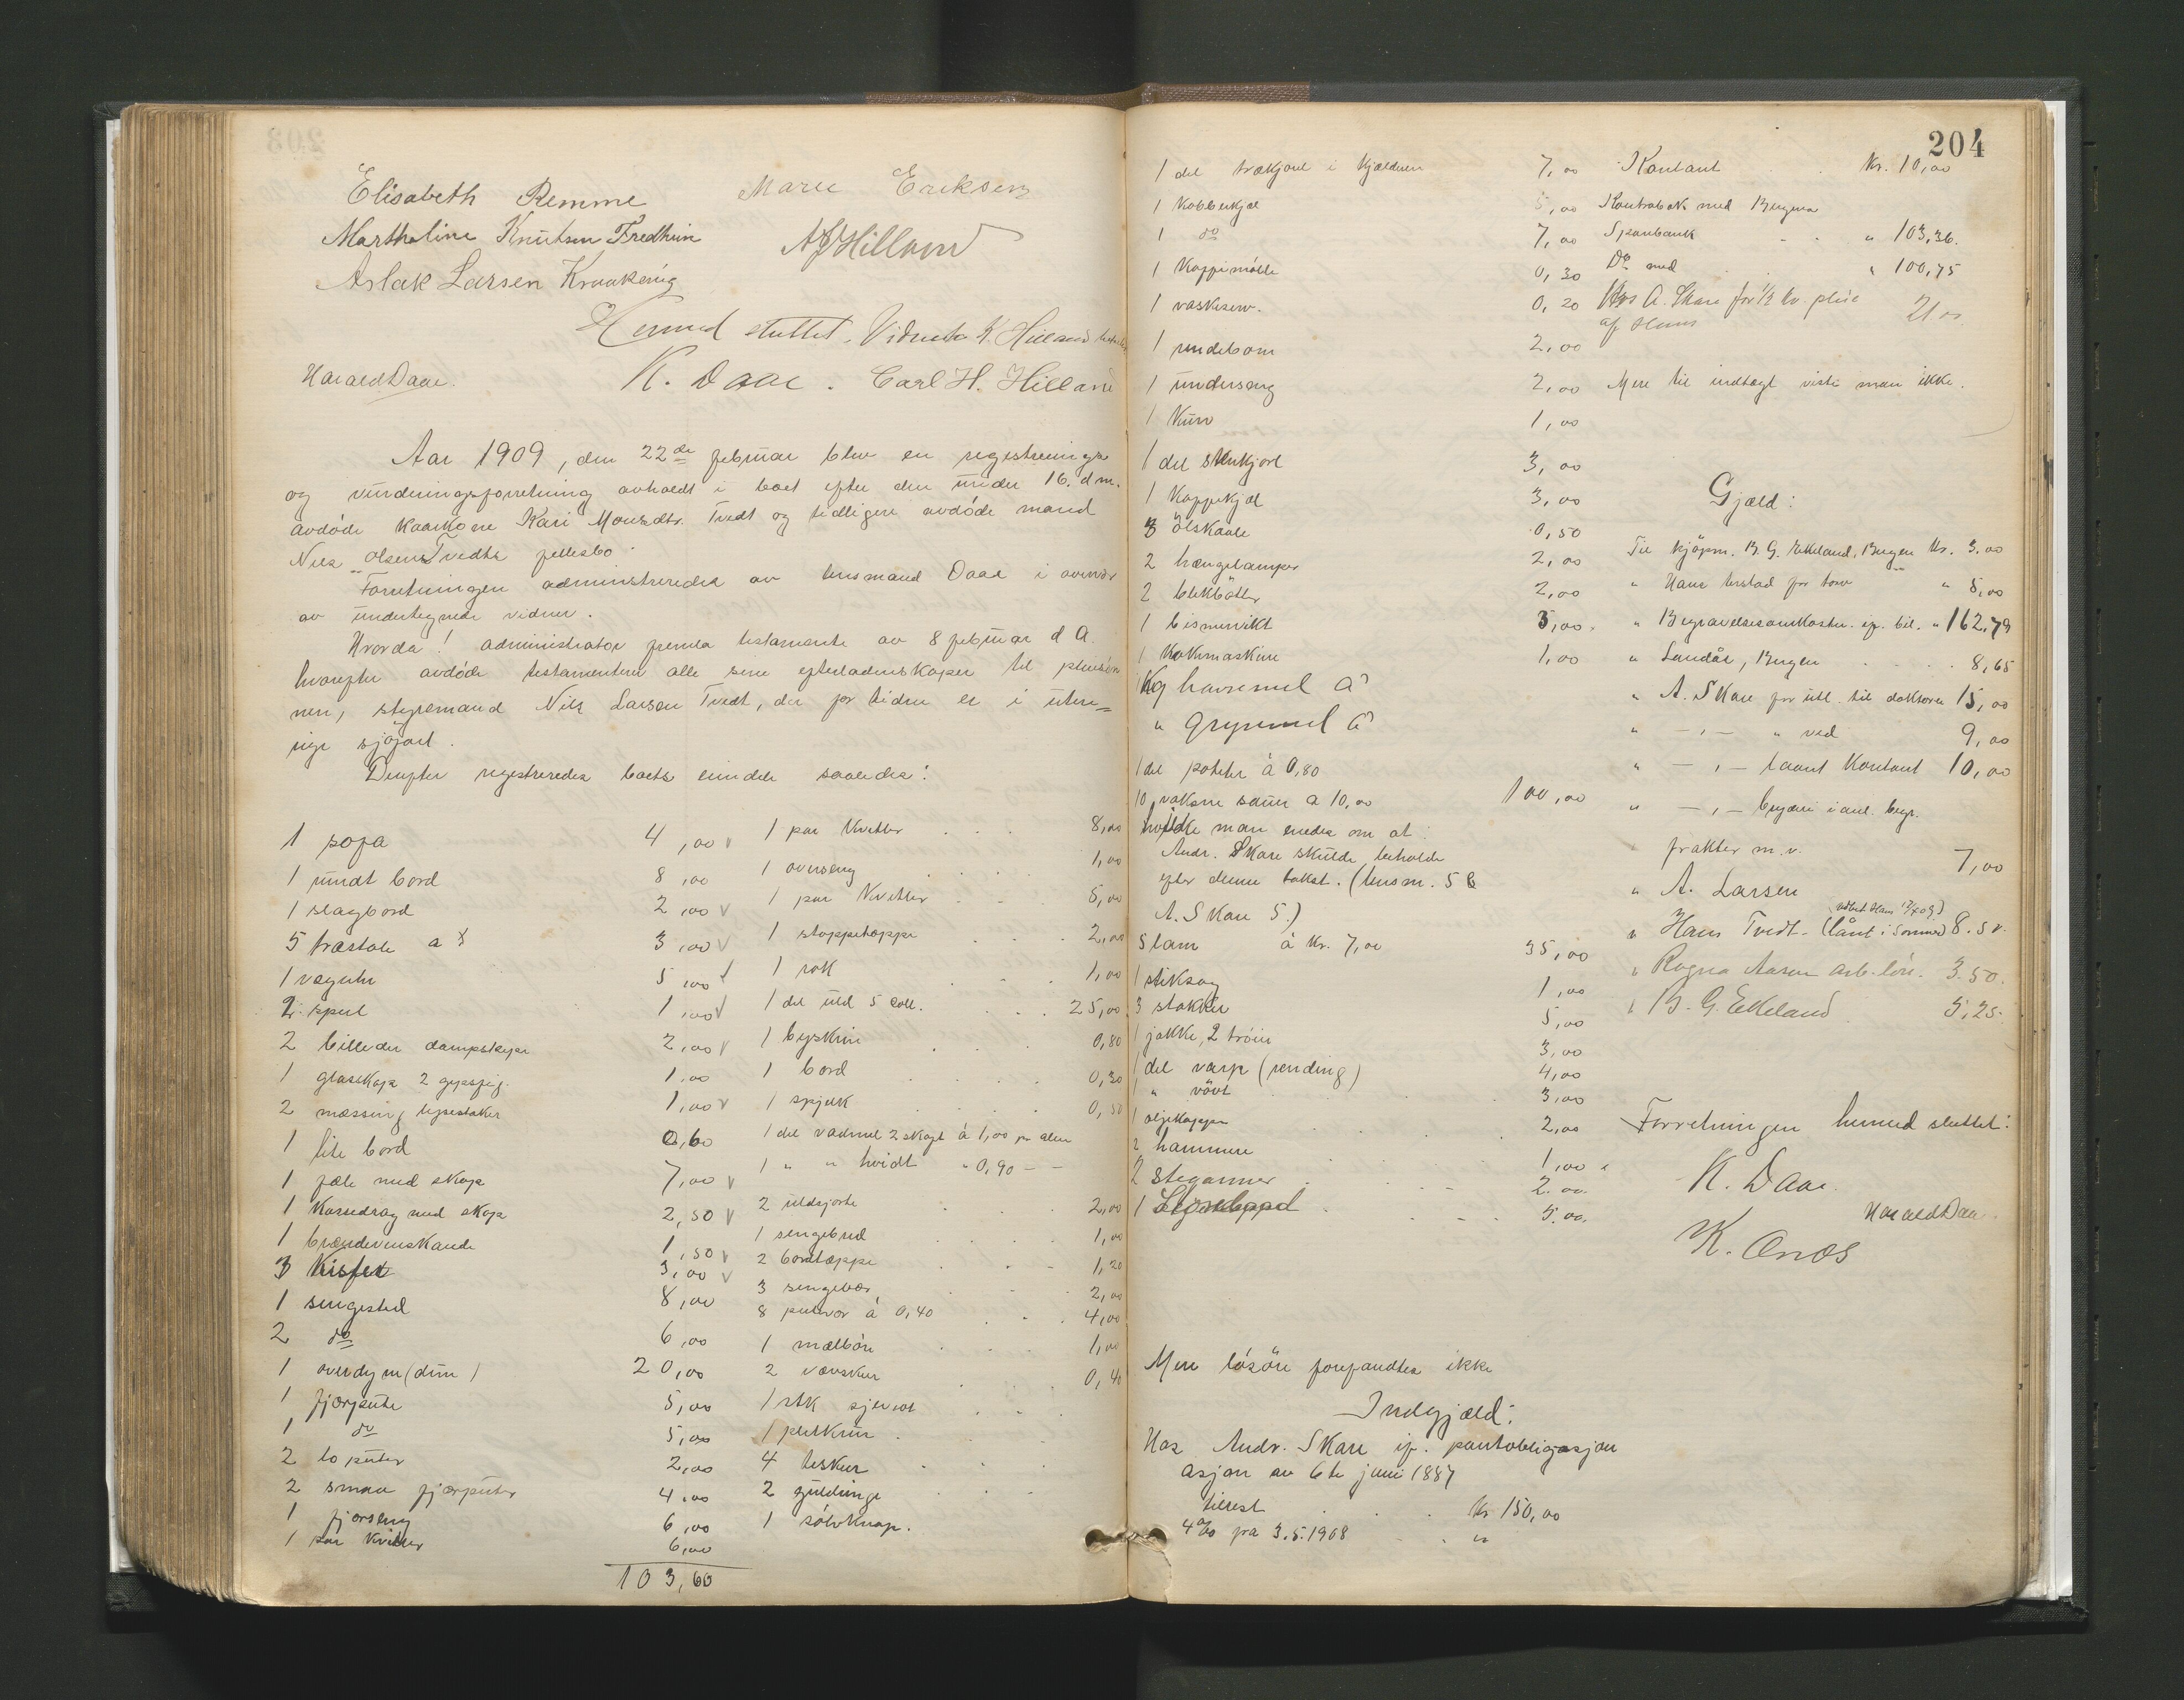 Elisabeth Remme
Marie Eriksen
Marthaline Knutsen Fredheim
Aslak Larsen Kraakenig
Hermed sluttet. Vidneth K. Hilland
Harald Daae.
K. Daae. Carl H. Hilland
Aar 1909, den 22de februar blev en registrerings
og vurderingsforretning avholdt i boet efter den under 16. d m.
avdöde kaarkone Kari Monsdtr. Tvedt og tidligere avdöde mand
Nils Olsens Tvedts fellesbo.
Forretningen administreredes av lensmand Daae i overvær
av undertegnede vidner.
Hvorda! administrator fremla testamente av 8 februar d A.
hvorefter avdöde testamenterer alle sine efterladenskaper til pleiesön
nen, styrmand Nils Larsen Tvedt, der for tiden er i uten=
rigs sjöfart.
Derefter registreredes boets eiendele saaledes:
1 sofa 4,00
1 rundt bord 8,00
1 slagbord 2,00
5 træstole a 3,00
1 væguhr 5,00
2 speil 1,00
2 billeder dampskepe 2,00
1 glasskop 2 gypsfig. 1,00
2 messing lysestaker 1,00
1 lite bord 0,60
1 fæle med skop 7,00
1 Kassedrag med skop 2,50
1 brændevinskande 1,50
3 Kister 3,00
1 sengested 8,00
2 do 6,00
1 overdyne (dun) 20,00
1 fjorpute 5,00
1 do 5,00
2 lo puter 2,00
2 smaa fjorputer 4,00
1 fjorseng 6,00
1 par kvitler 6,00
103,60
1 par Kvitler 8,00
1 overseng 1,00
1 par Kvitler 5,00
1 stoppetæppe 2,00
1 rok 1,00
1 del uld 5 coll. 25,00
1 byskrin 0,80
1 bord 0,30
1 spjelk 0,50
1 del vadmel 2 skagt á 1,00 pr alen
1 " " hvidt " 0,90 - -
2 uldsjorte 2,00
1 sengebred 1,00
2 bordtæppe 1,20
3 sengevar 2,00
8 putevor à 0,40 4,00
1 mælbön 1,00
2 0,40
1 stk
1
4 teskeer
2 guldringe
1 sölvknap.
204
1 del trækjorel i kjælderen 7,00
1 Kobberkjel 5,00
1 do 7,00
1 Kaffimölle 0,30
1 vaskeserv. 0,20
1 rendebom 2,00
1 underseng 2,00
1 Kurv 1,00
1 del stenkjorl 3,00
1 Kaffekjel 3,00
3 ölskaale 0,50
2 hængelamper 2,00
2 blikbötter 2,00
1 bismervikt 3,00
1 Kokemaskine 1,00
1 Kg havremel à
" grynmel à
1 del poteter à 0,80
10 voksne sauer a 10,00 100,00
hvilke man enedes om at
Andr. Skare skulde beholde
efter denne takst. (lensm. 5 &
A. Skare 5.)
5 lam á Kr. 7,00 35,00
1 stiksag 1,00
3 stakker 5,00
1 jakke, 2 tröier 3,00
1 del varp (rending) 4,00
1 " vövt 3,00
1 oljekappe 2,00
2 hammere 1,00
2 steganner 2.00
1 5.00.
Mere lösöre forefandtes ikke
Indgjæld:
Hos Andr. Skare if. pantobligasjon
asjon av 6te juni 1887
tilrest Kr 150,00
4% fra 3.5.1908 "
Kontant Kr. 10,00
Kontrabok med Bergens
Sparebank " 103,36.
Do med " 100,75
Hos A. Skare for 1/2 kv. pleie
af Hans 21 00
Mere til indtægt viste man ikke.
Gjæld:
Til kjöpm. B. G. Ekeland, Bergen Kr. 3.00
" Hans for torv " 5,00
" Begravelsesomkostn. if. bil. " 162,79
" Landås, Bergen 8,65
" A. Skare for utl. til doktoren 15,00
" - , - " ved 9,00
" - , - laant Kontant 10,00
" - , - bryderi i anl. begr.
frakter m.v. 7,00
" A. Larsen
" Hans Tvedt - (lånt i Sommer) 8.50
" Ragna Aasen arb. lön. 3.50.
" B. G. Ekeland 5,25.
Forretningen hermed sluttet:
K. Daae.
Harald Daae.
K. Onæs